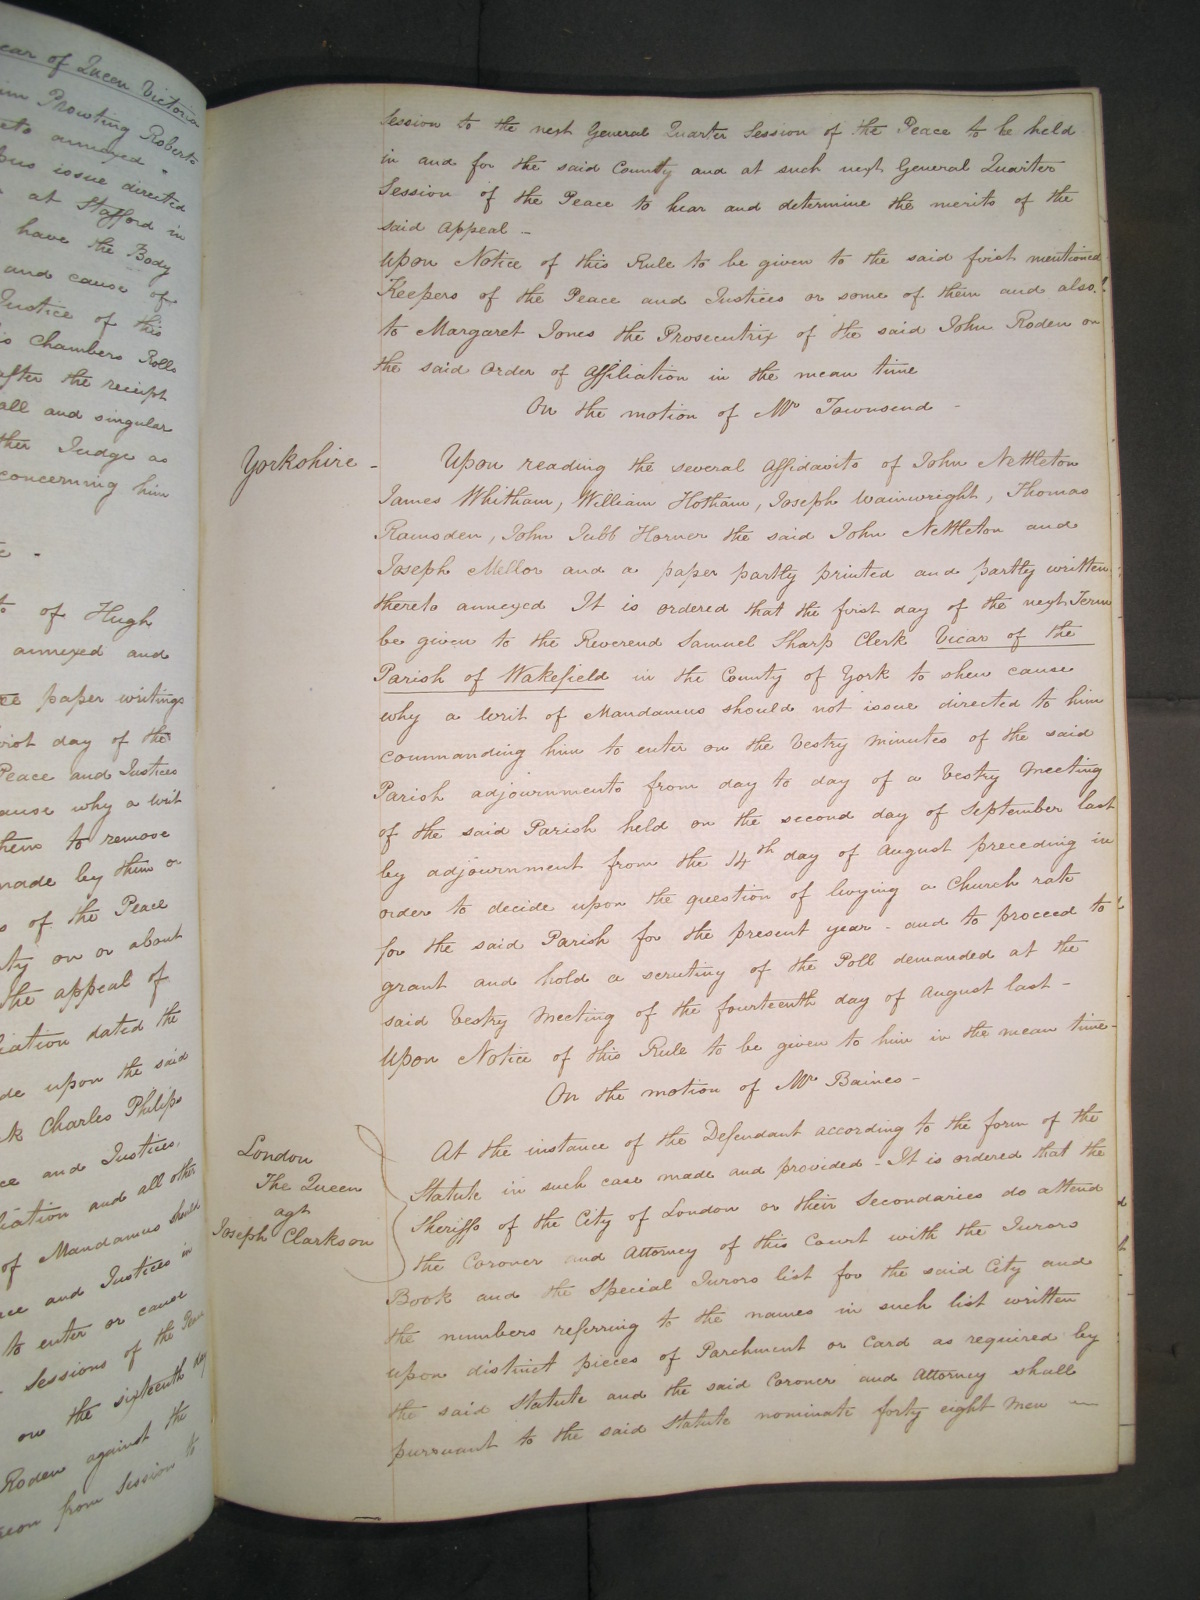 ear of Queen Victoria
im Prowting Roberts
eto annexed
pus issue directed
at Stafford in
have the Body
and cause of
Justice of this
is Chambers Rolls
after the receipt
all and singular
ther Judge as
concerning him
to of Hugh
annexed and
paper writings
irst day of the
Peace and Justices
ause why a writ
them to remove
made by them or
s of the Peace
ty on or about
the appeal of
iation dated the
de upon the said
k Charles Philips
ce and Justices
liation and all other
of Mandamus should
ace and Justices in
to enter or cause
Sessions of the Peace
on the sixteenth day
Roden against the
from Session to
Session to the next General Quarter Session of the Peace to be held
in and for the said County and at such next General Quarter
Session of the Peace to hear and determine the merits of the
said Appeal -
Upon Notice of this Rule to be given to the said first mentioned
Keepers of the Peace and Justices or some of them and also
to Margaret Jones the Prosecutrix of the said John Roden on
the said Order of Affiliation in the mean time
On the motion of Mr Townsend -
Yorkshire -
Upon reading the several Affidavits of John Nettleton
James Whitham, William Hotham, Joseph Wainwright, Thomas
Ramsden, John Jubb Horner the said John Nettleton and
Joseph Mellor and a paper partly printed and partly written
thereto annexed It is ordered that the first day of the next Term
be given to the Reverend Samuel Sharp Clerk Vicar of the
Parish of Wakefield in the County of York to shew cause
why a Writ of Mandamus should not issue directed to him
commanding him to enter on the Vestry Minutes of the said
Parish adjournments from day to day of a Vestry Meeting
of the said Parish held on the second day of September last
by adjournment from the 14th day of August preceding in
order to decide upon the question of laying a Church rate
for the said Parish for the present year - and to proceed to
grant and hold a scrutiny of the Poll demanded at the
said Vestry Meeting of the fourteenth day of August last -
Upon Notice of this Rule to be given to him in the mean time -
On the motion of Mr Baines -
London
The Queen
agt
Joseph Clarkson
At the instance of the Defendant according to the form of the
Statute in such case made and provided - It is ordered that the
Sheriffs of the City of London or their Secondaries do attend
the Coroner and Attorney of this Court with the Jurors
Book and the Special Jurors list for the said City and
the numbers referring to the names in such list written
upon distinct pieces of Parchment or Card as required by
the said Statute and the said Coroner and Attorney shall
pursuant to the said Statute nominate forty eight Men